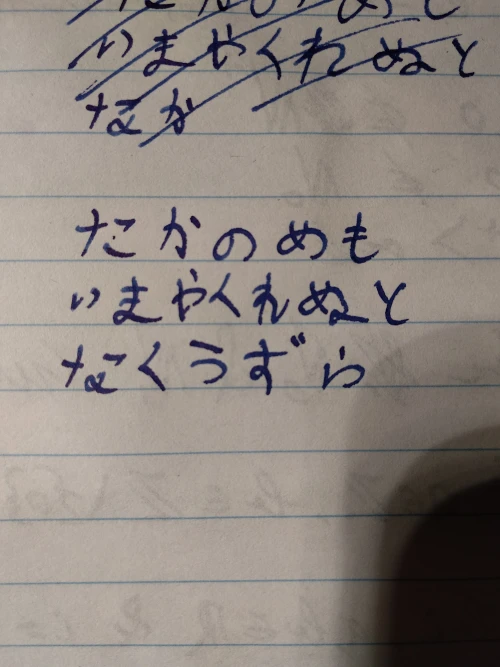 いまやくれぬと
なが
たかのめも
いまやくれぬと
なくうずら